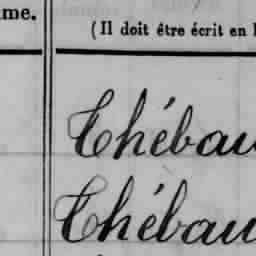 me.
(Il doit être écrit en
Thébau
Thébau